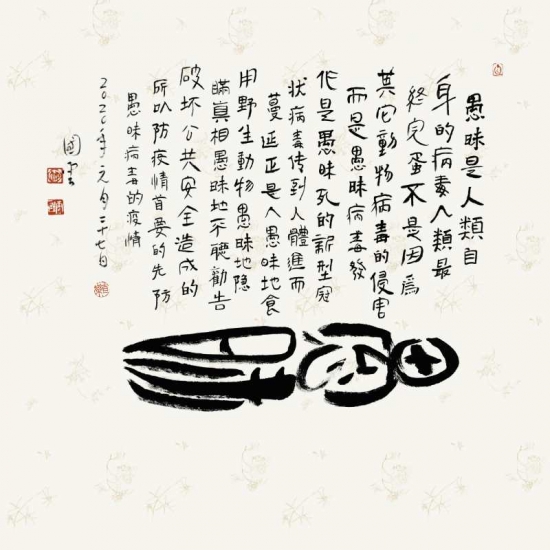 愚昧是人類自
身的病毒人類最
終完蛋不是因爲
其它動物病毒的侵害
而是愚昧病毒發
作是愚昧死的新型冠
狀病毒传到人體進而
蔓延正是人愚昧地食
用野生動物愚昧地隐
瞞真相愚昧地不聽勸告
破坏公共安全造成的
所以防疫情首要的先防
愚昧病毒的疫情
2020年元月二十七日
國